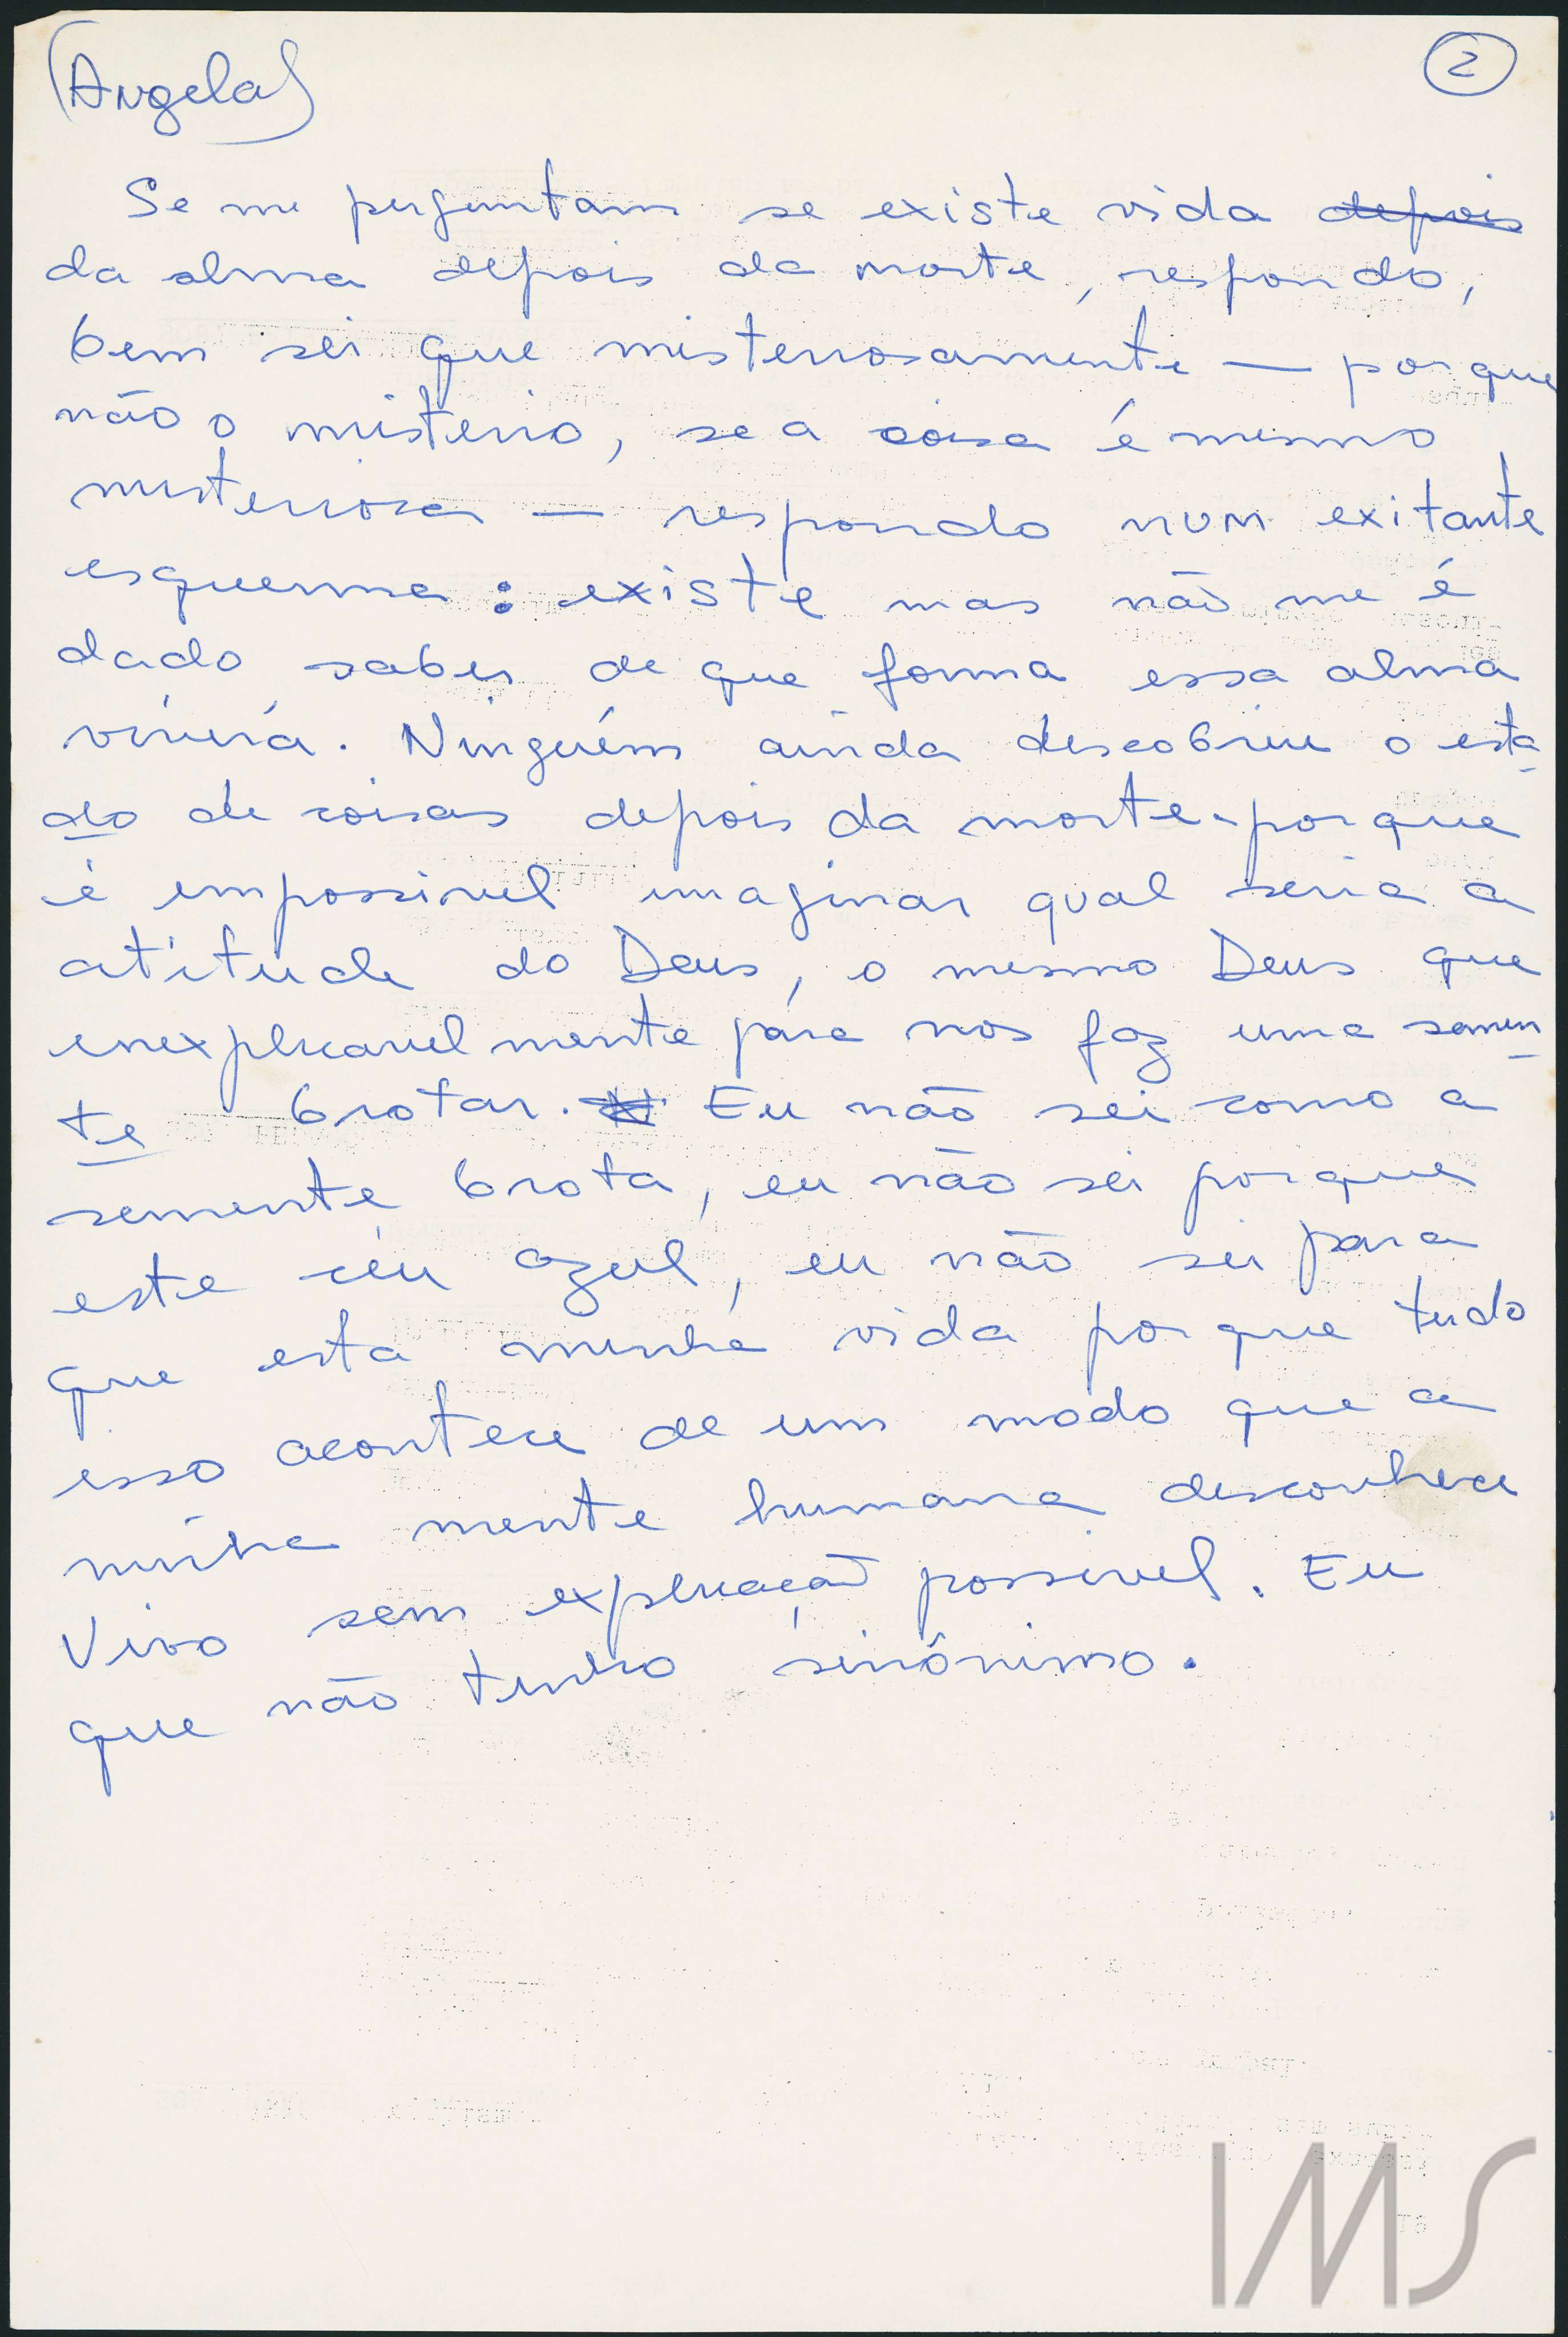 (Angela)
2
Se me perguntam se existe vida depois
da alma depois da morte, respondo,
bem sei que misteriosamente — porque
não o misterio, se a coisa é mesmo
misteriosa — respondo num exitante
esquema: existe mas não me é
dado saber de que forma essa alma
viverá. Ninguém ainda descobriu o esta
do de coisas depois da morte porque
é impossivel imaginar qual seria a
atitude do Deus, o mesmo Deus que
inexplicavelmente para nós faz uma semen
te brotar. N Eu não sei como a
semente brota, eu não sei porque
este céu azul, eu não sei para
que esta minha vida porque tudo
isso acontece de um modo que a
minha mente humana desconhece
Vivo sem explicação possivel. Eu
que não tenho sinônimo.
IMS